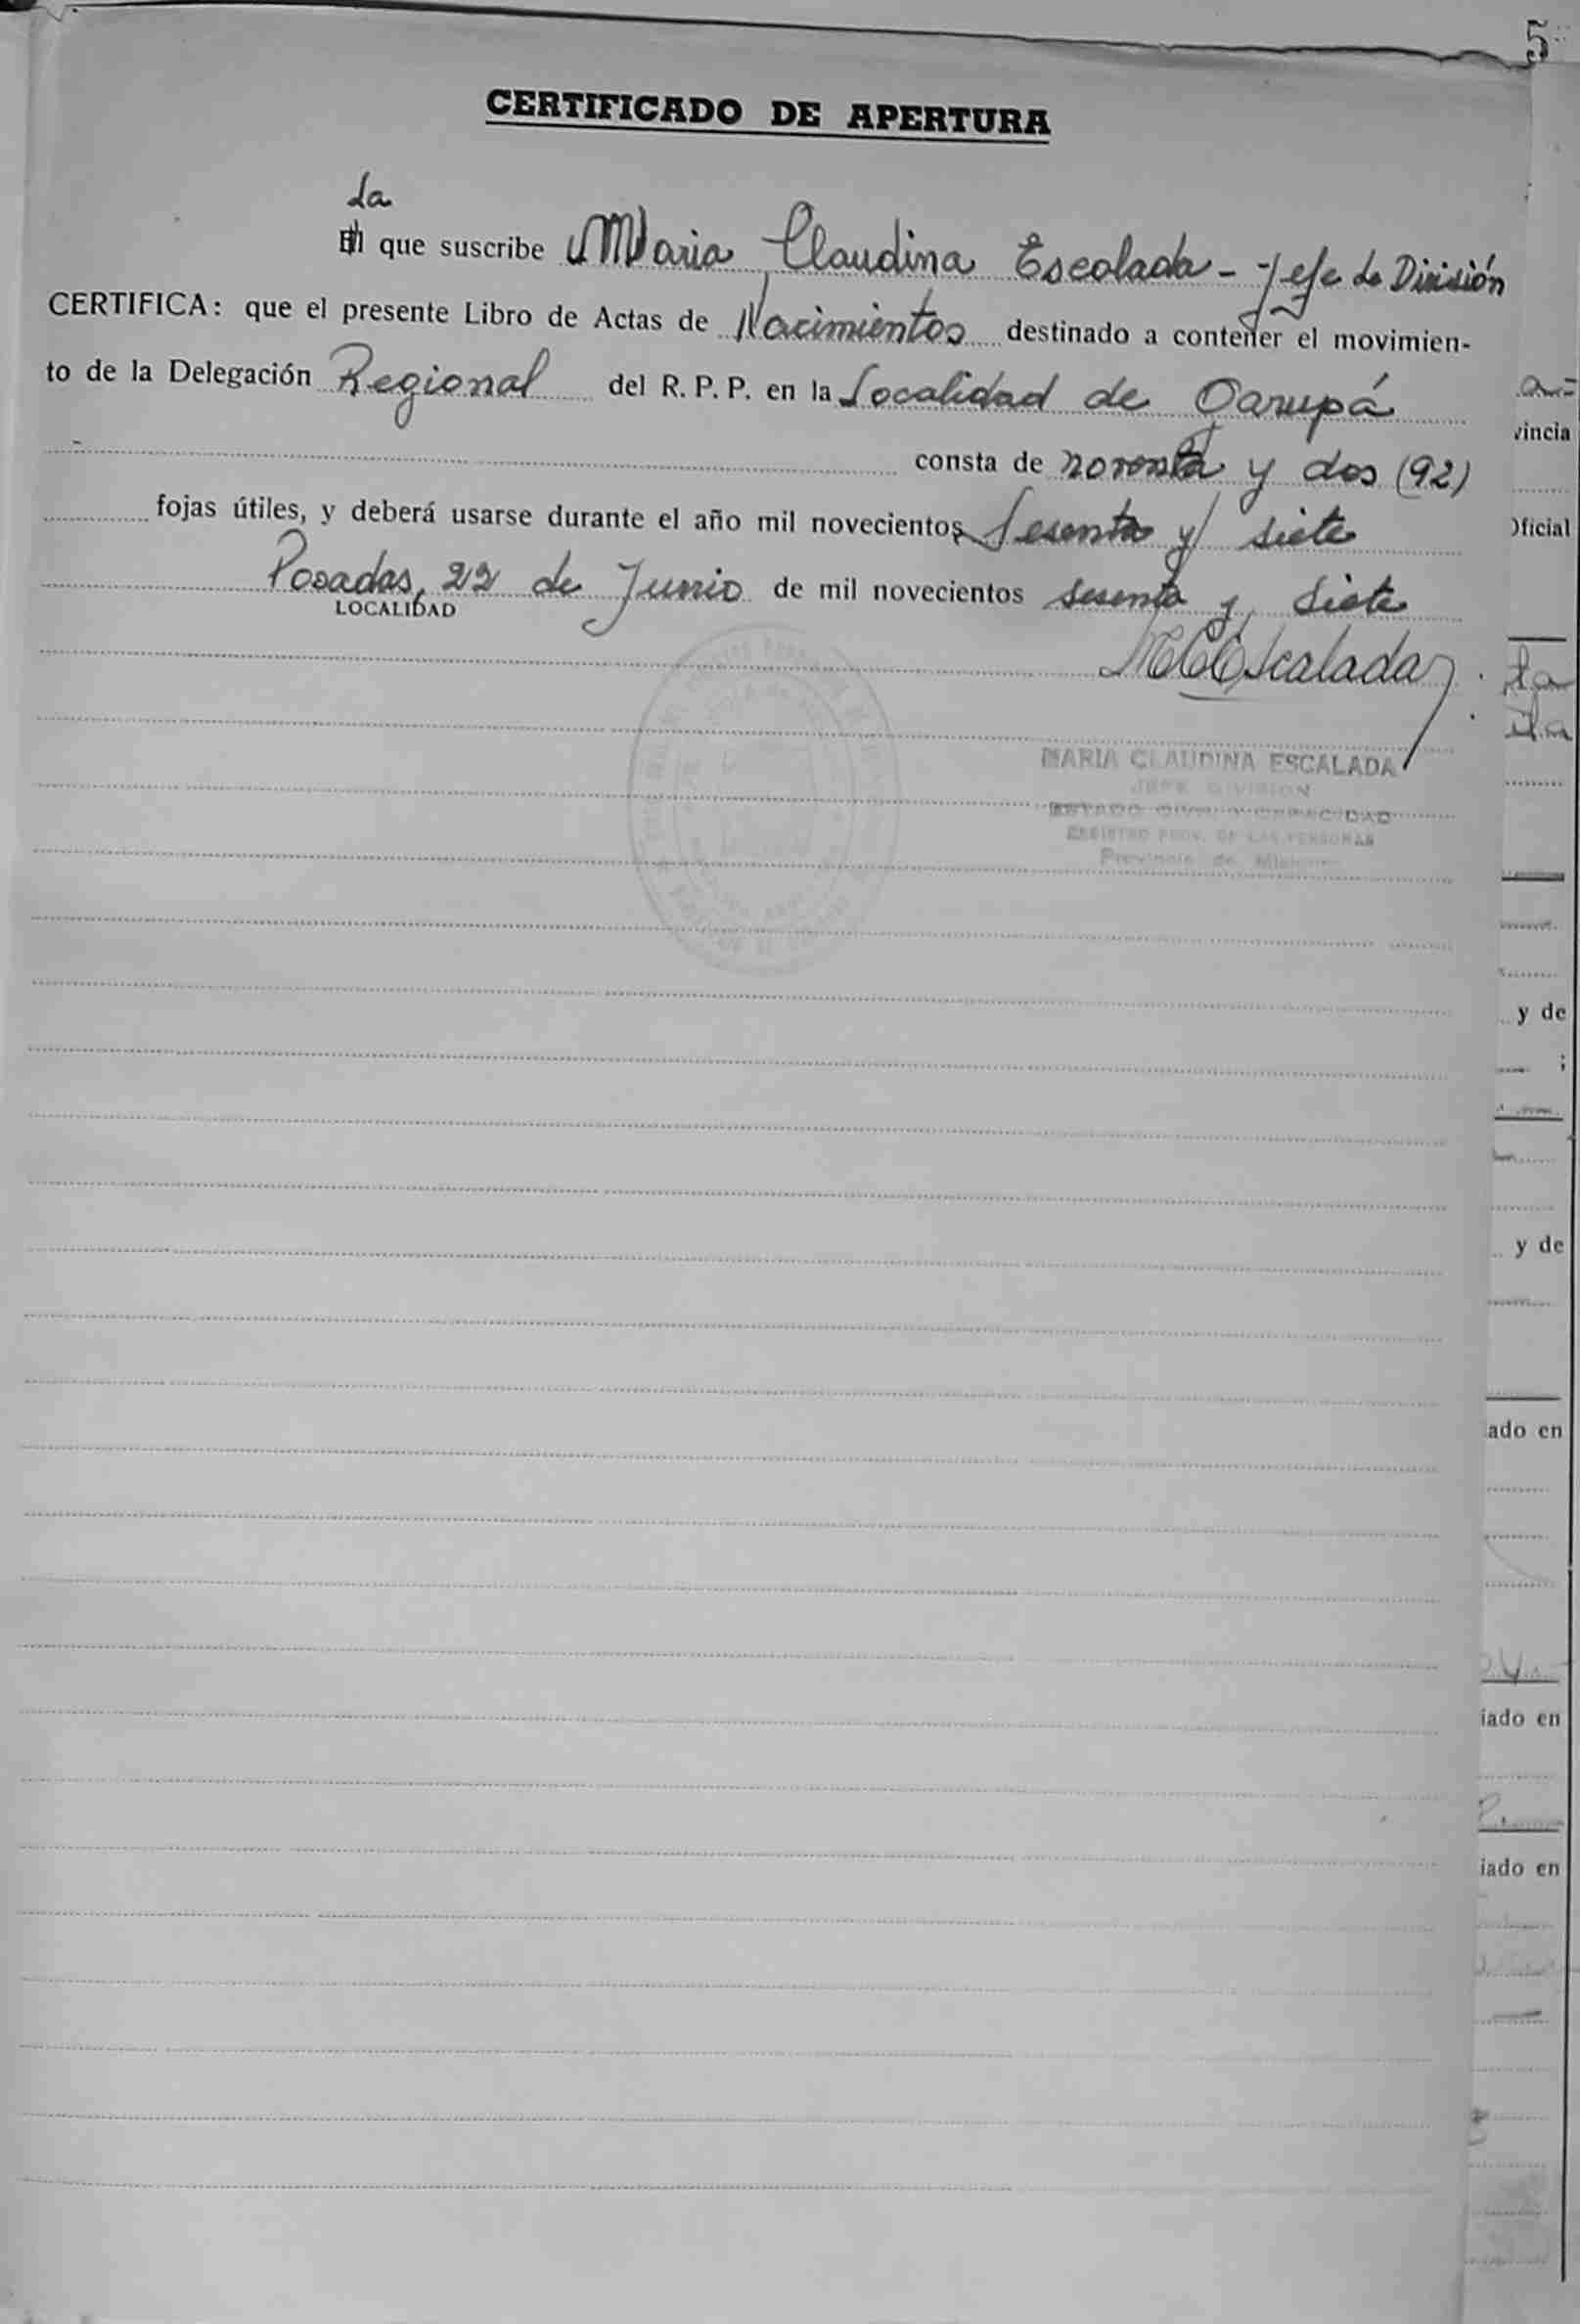 5
CERTIFICADO DE APERTURA
La
El que suscribe Maria Claudina Escolada - Jefe de División
CERTIFICA: que el presente Libro de Actas de Nacimientos destinado a contener el movimien-
to de la Delegación Regional del R. P. P. en la Localidad de Garupá
consta de noventa y dos (92)
fojas útiles, y deberá usarse durante el año mil novecientos Sesenta y siete
Posadas, 22 de Junio de mil novecientos sesenta y siete
LOCALIDAD
MCEscalada
MARIA CLAUDINA ESCALADA
JEFE DIVISION
ESTADO CIVIL Y CAPACIDAD
REGISTRO PROV. DE LAS PERSONAS
Provincia de Misiones
vincia
Oficial
y de
y de
ado en
iado en
iado en